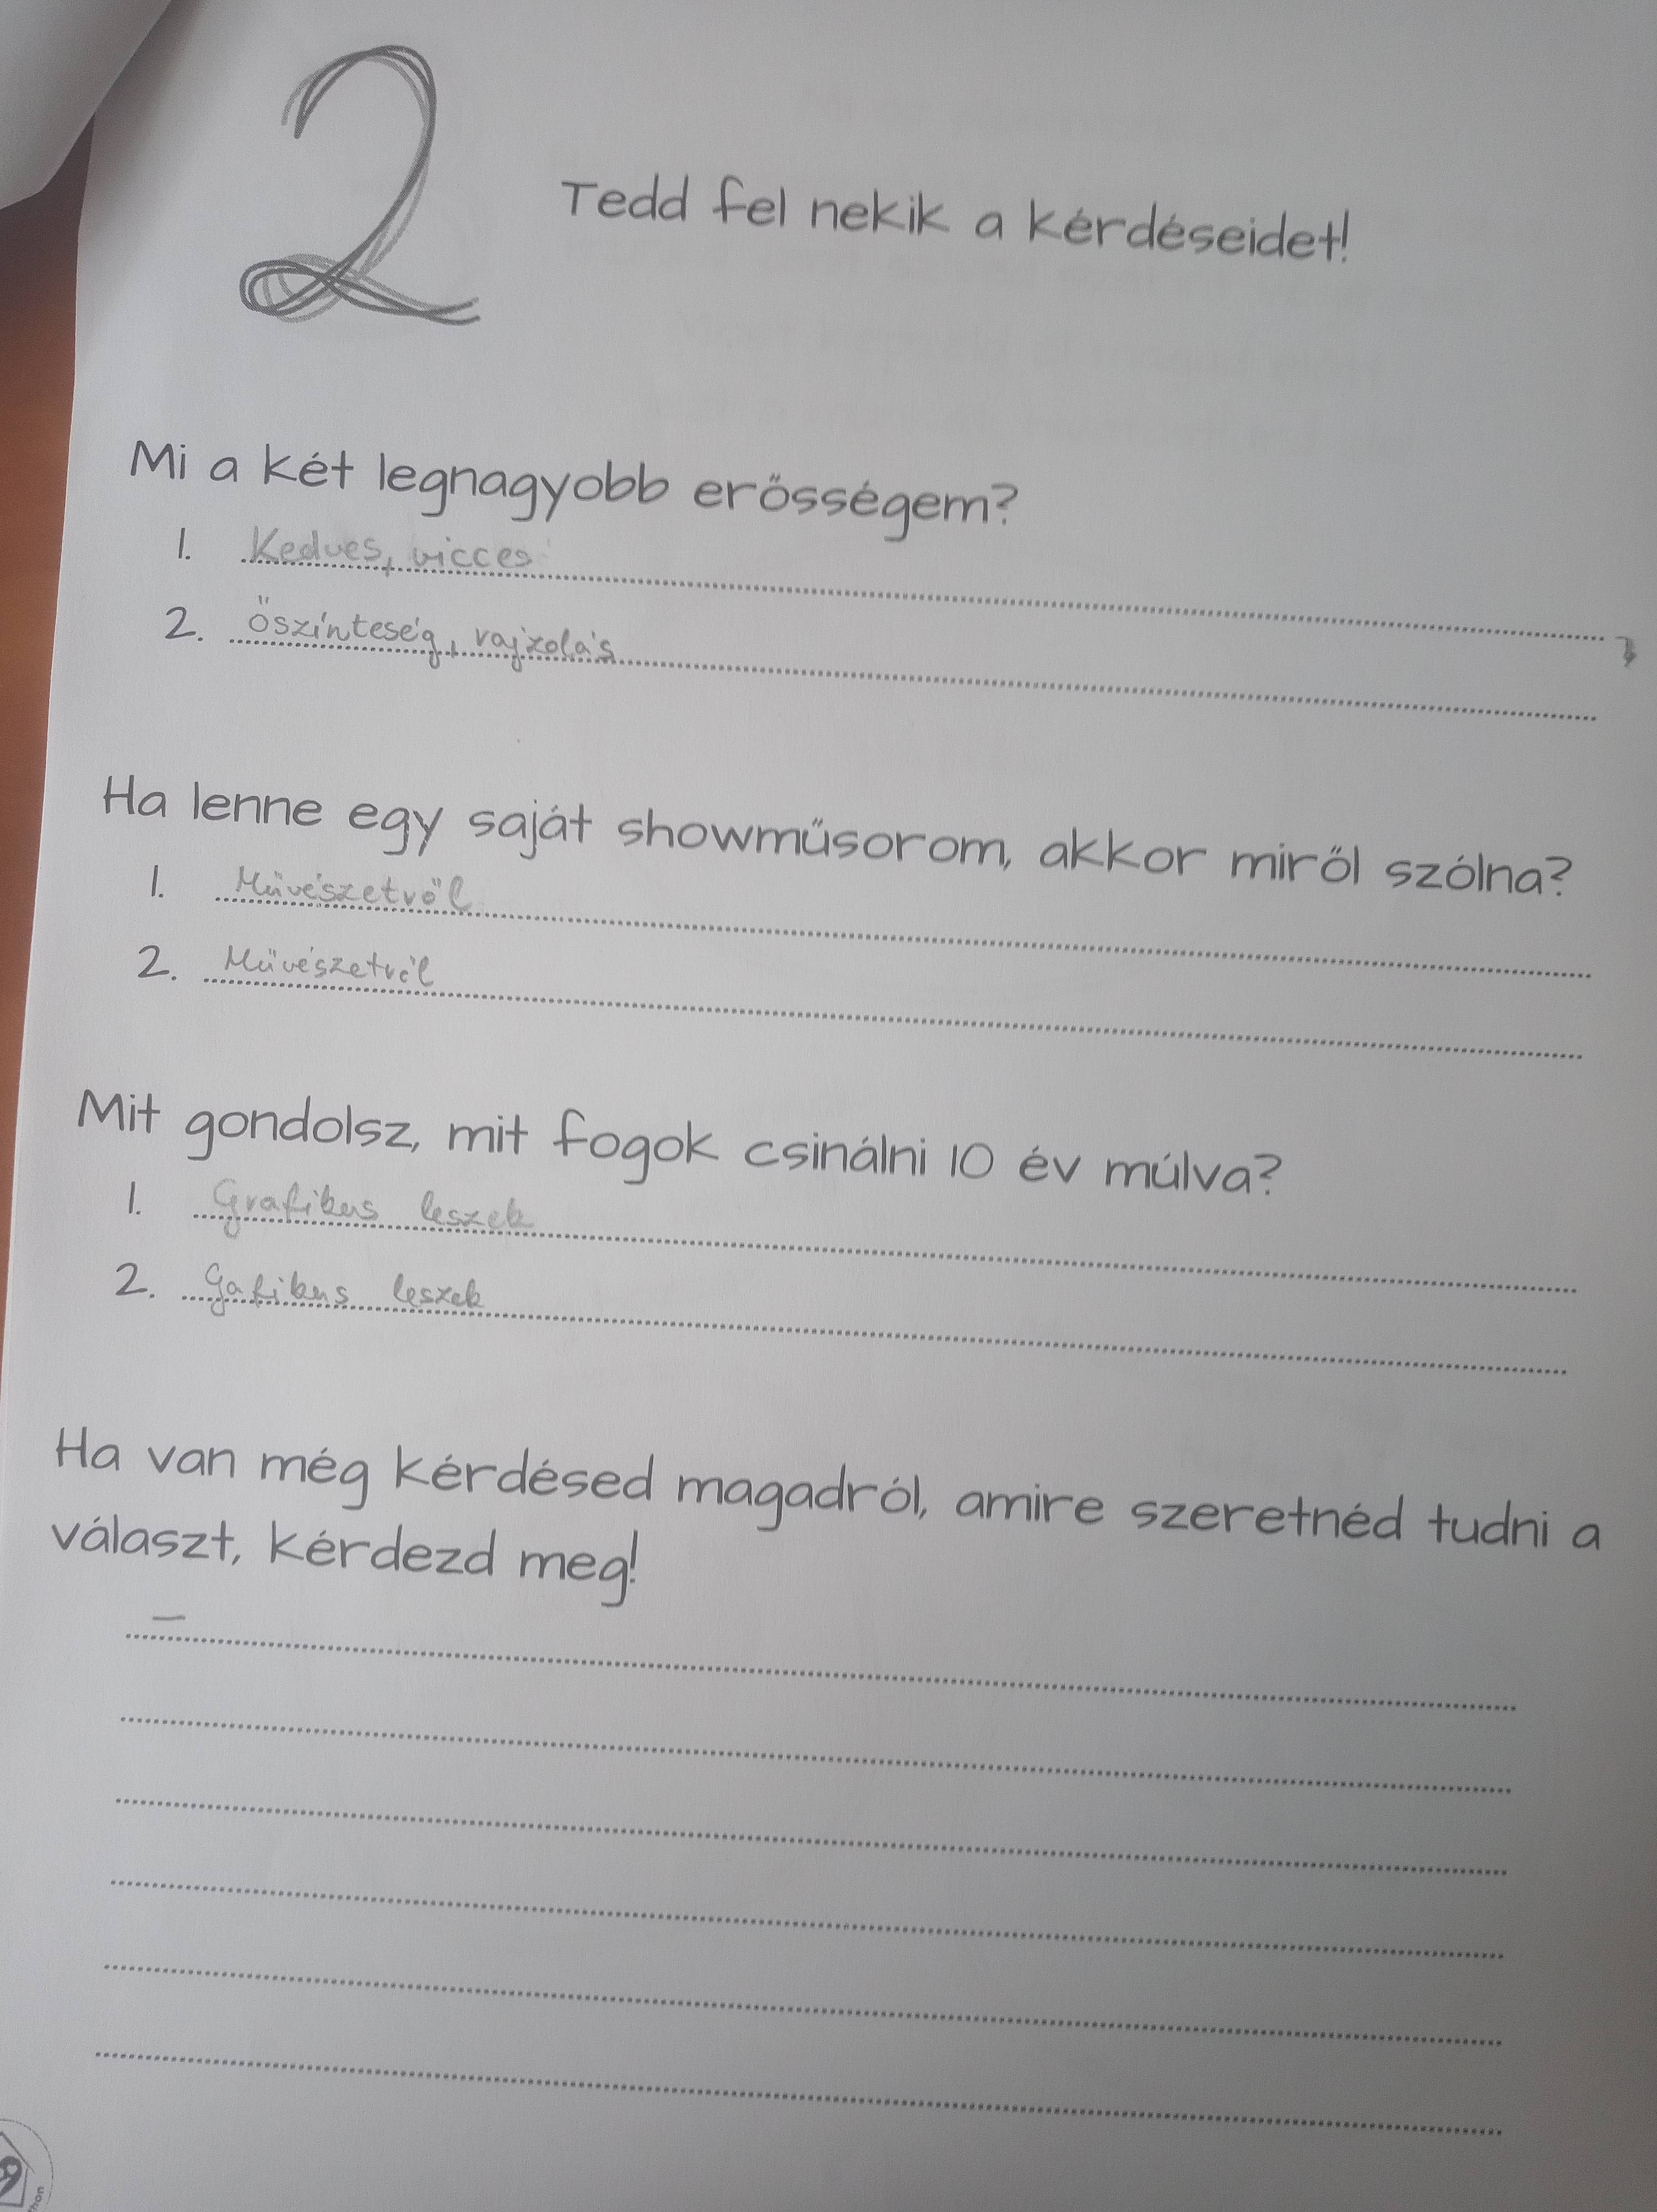 2
Tedd fel nekik a kérdéseidet!
Mi a két legnagyobb erősségem?
1. Kedves, vicces
2. őszínteség, rajzolás
Ha lenne egy saját showműsorom, akkor miről szólna?
1. Művészetről
2. Művészetről
Mit gondolsz, mit fogok csinálni 10 év múlva?
1. Grafikus leszek
2. Gafikus leszek
Ha van még kérdésed magadról, amire szeretnéd tudni a
választ, kérdezd meg!
—